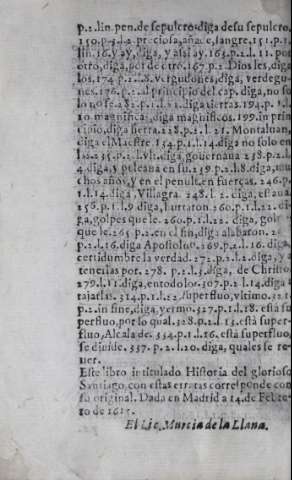 p.2.lin.pen.de sepulcro, diga de su sepulcro.
150.p.3.l.2. preciosa, añade, sangre. 151.p.1.
lin.16. y ay, diga, y assi ay. 165.p.2.l.11. por
otro, diga, por de otro. 167.p.2. Dios les, diga
los. 174.p.2.l.8. vergudones, diga, verdegu-
nes. 176.p.2. al principio del cap. diga, no so
lo no se. 182.p.1.l.21. diga tierras. 194.p.1.l.
10. magnifica, diga magnificos. 199. in prin
cipio, diga sierra. 228.p.2.l.21. Montaluan,
diga el Maestre. 154.p.1.l.14. diga no solo en
las. 235.p.2.l.vlt. diga, gouernaua. 238.p.2.l.
4. diga, y peleaua en su. 239.p.2.l.8. diga, mu
chos años, y en el penult. en fuerças. 246.p.
1.l.14. diga, Villagra. 248.l.2. diga, estaua.
256.p.1.l.9. diga, hurtaron. 260.p.1.l.22. di
ga, golpes que le. 260.p.1.l.22. diga,
que le. 265.p.2. en el fin, diga alabaron.
p.2.l.16. diga Apostolus. 269.p.2.l.16. diga,
certidumbre la verdad. 272.p.2.l.2. diga, y a
tenerlas por. 278. p.2.l.5. diga, de Christo.
279.l.11. diga, en todo lo. 307.p.2.l.14. diga a
tajarlas. 314.p.1.l.22. superfluo, vltimo. 321.
p.2. in fine, diga, yermo. 327.p.1.l.18. està su
perfluo, por lo qual. 328.p.2.l.13. està super-
fluo, Alcala de. 334.p.1.l.16. està superfluo,
se diuide. 337. p.2.l.20. diga, quales se re-
uer.
Este libro intitulado Historia del glorioso
Santiago, con estas erratas corresponde con
su original. Dada en Madrid a 14. de Febre-
ro de 1615.
El Lic. Murcia de la Llana.